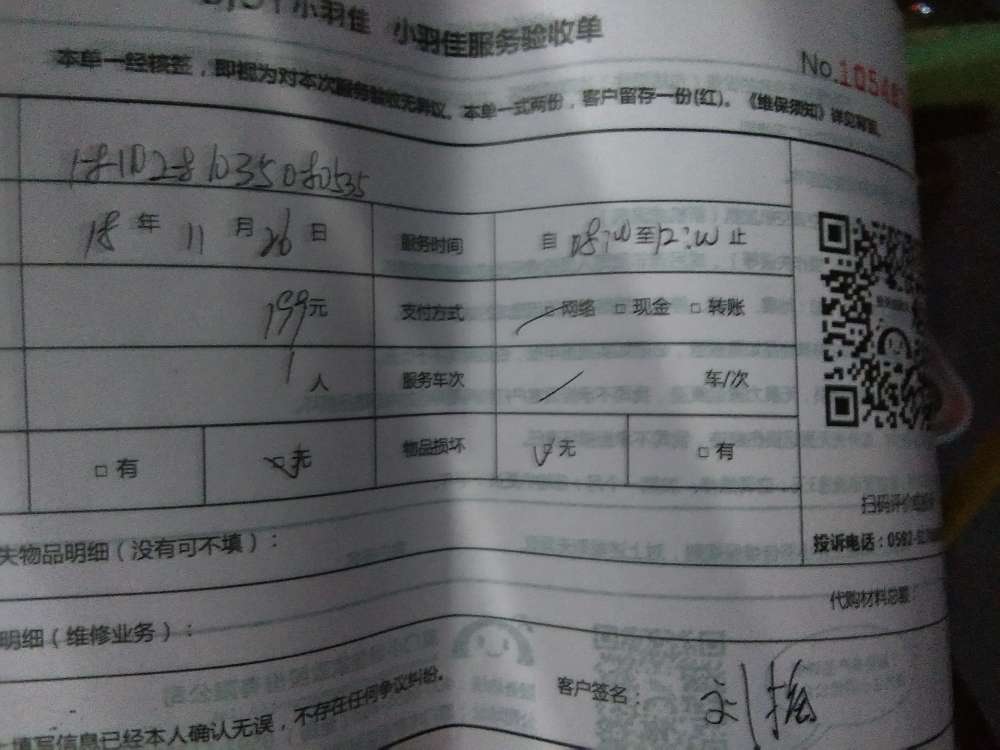 小羽佳 小羽佳服务验收单
No.1054
本单一经核签，即视为对本次服务验收无异议。本单一式两份，客户留存一份(红)。《维保须知》详见背面。
1810281035080535
18 年 11 月 26 日 服务时间 自 08:00 至 12:00 止
199元 支付方式 □ 网络 □ 现金 □ 转账
1 人 服务车次 车/次
□ 有 □ 无 物品损坏 □ 无 □ 有
扫码评价
失物品明细（没有可不填）：
投诉电话：0592-
代购材料总额：
明细（维修业务）：
客户签名：
填写信息已经本人确认无误，不存在任何争议纠纷。